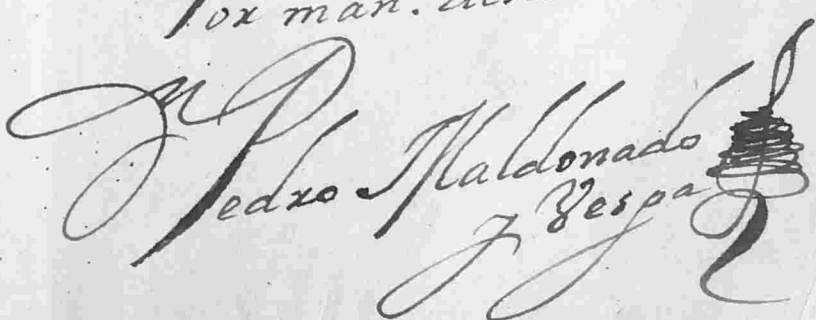 Por man.
Pedro Maldonado
y Vespa